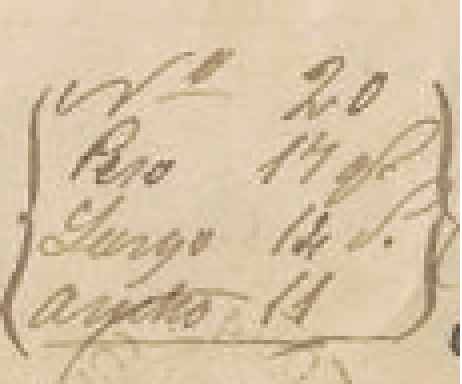 Nº 20
Peso 17 gs
Largo 14 
Ancho 11